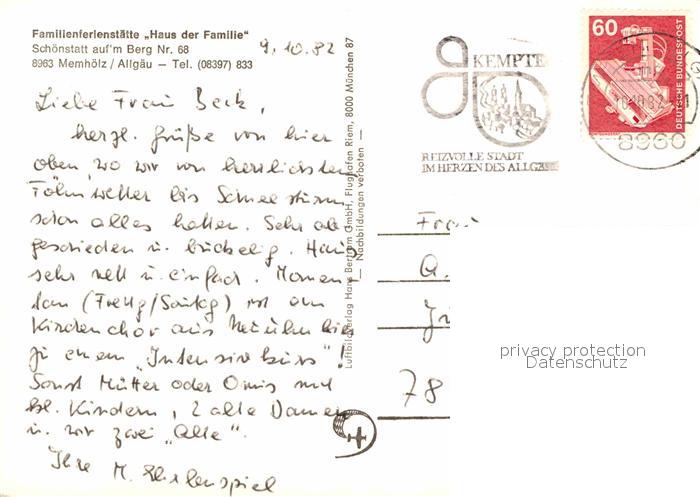 Familienferienstätte „Haus der Familie"
Schönstatt auf'm Berg Nr. 68
8963 Memhölz / Allgäu – Tel. (08397) 833
9.10.82
Liebe Frau Beck,
herzl. Grüße von hier
oben, wo wir von herrlichstem
Föhnwetter bis Schneesturm
schon alles hatten. Sehr ab
geschieden u. buckelig. Haus
sehr nett u. einfach. Momen
tan (Freitg/Samstg) ist ein
Kinderchor aus Neuulm hier
zu einem „Intensivkurs"!
Sonst Mütter oder Omis mit
kl. Kindern, 2 alte Damen
u. wir zwei „Alte".
Ihre M.
Luftbildverlag Hans Bertram GmbH, Flughafen Riem, 8000 München 87
— Nachbildungen verboten —
KEMPTE
REIZVOLLE STADT
IM HERZEN DES ALLGÄ
60
DEUTSCHE BUNDESPOST
8960
Frau
78
privacy protection
Datenschutz